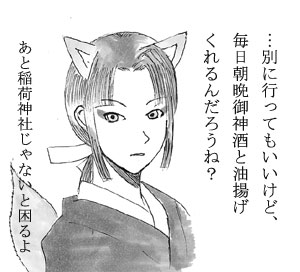 …別に行ってもいいけど、
毎日朝晩御神酒と油揚げ
くれるんだろうね？
あと稲荷神社じゃないと困るよ